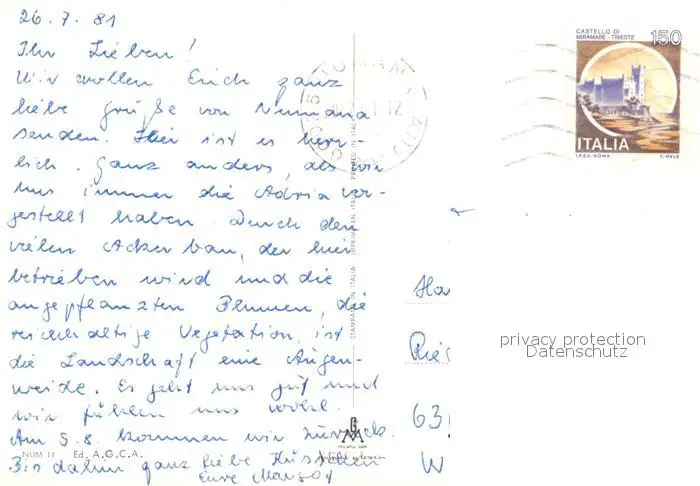 26.7.81
Ihr Lieben!
Wir wollen Euch ganz
liebe Grüße von Numana
senden. Hier ist es herr-
lich. Ganz anders, als wir
uns immer die Adria vor-
gestellt haben. Durch den
vielen Ackerbau, der hier
betrieben wird und die
angepflanzten Blumen, die
reichhaltige Vegetation, ist
die Landschaft eine Augen-
weide. Es geht uns gut und
wir fühlen uns wohl.
Am 5.8. kommen wir zurück.
Bis dahin ganz liebe Küsschen
Eure Margot
NUM 11 Ed. A.G.C.A.
STAMPATO IN ITALIA IMPRIMÉ EN ITALIE PRINTED IN ITALY
CASTELLO DI
MIRAMARE - TRIESTE
150
ITALIA
I.P.Z.S.-ROMA
Ha
Ries
63
W
privacy protection
Datenschutz